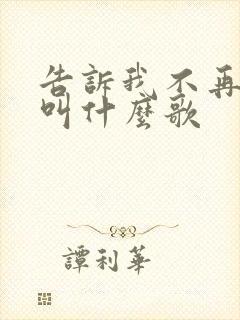 告訴我不再
叫什麼歌
譚利華